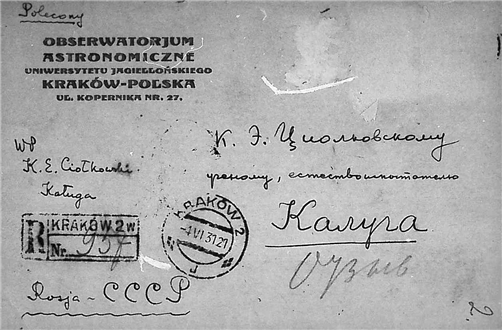 Polecony
OBSERWATORJUM
ASTRONOMICZNE
UNIWERSYTETU JAGIELLOŃSKIEGO
KRAKÓW-POLSKA
UL. KOPERNIKA NR. 27.
WP
K. E. Ciołkowski
Kaługa
К. Э. Циолковскому
ученому, естествоиспытателю
Калуга
R KRAKÓW 2
Nr. 957
KRAKÓW 2
VI 31 21
Отзыв
Rosja - СССР